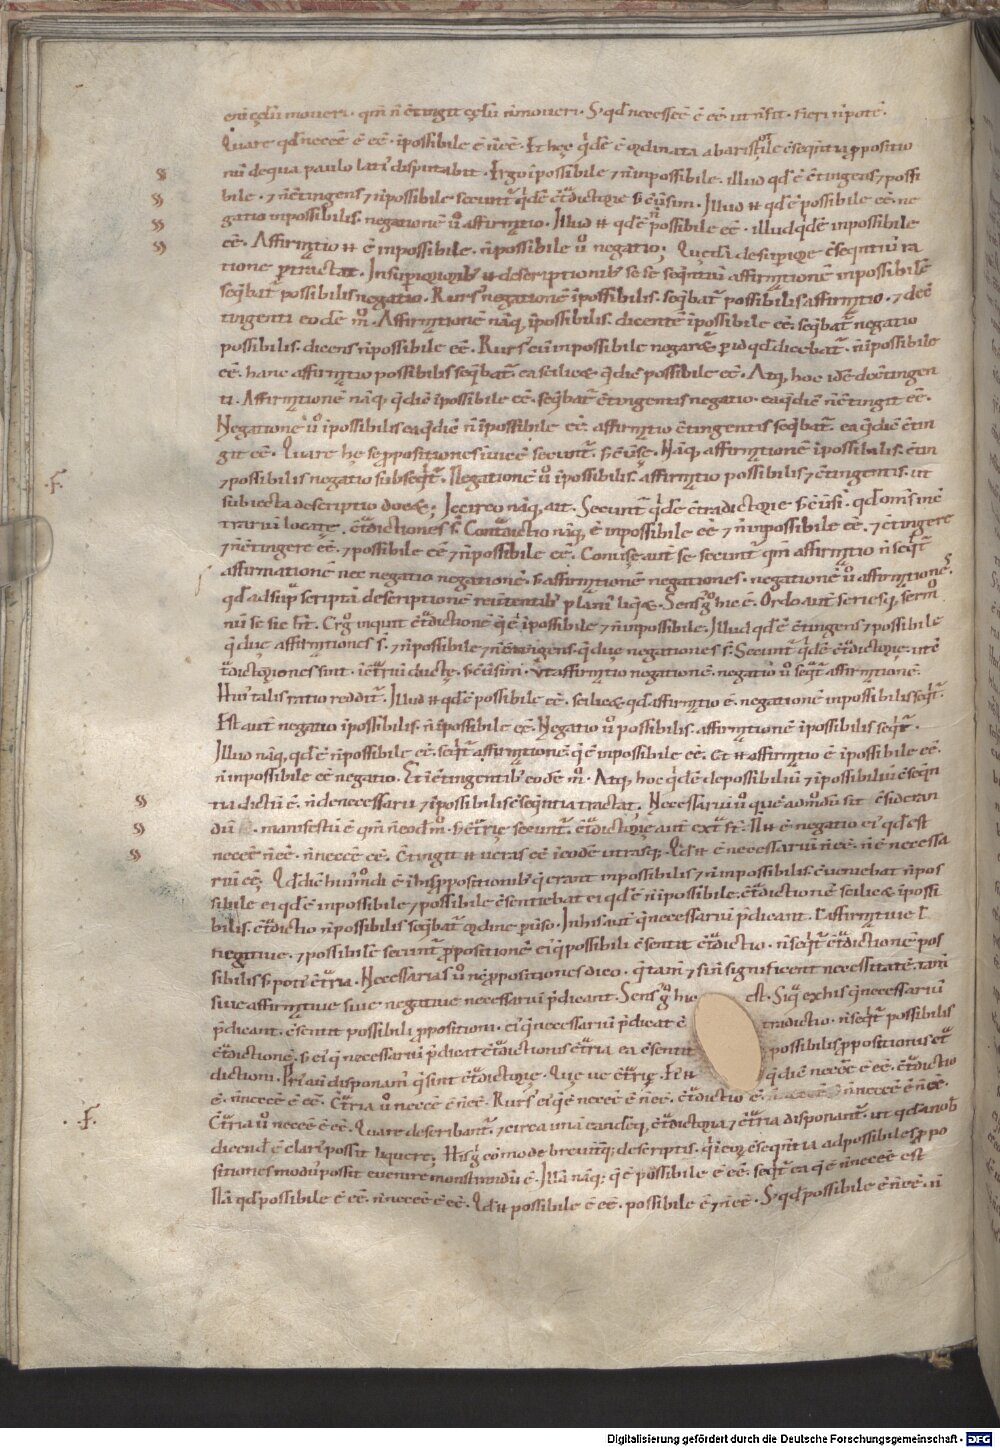 eni cęlū moueri · qm̄ n̄ c̄tingit cęlū n̄ moueri · S; qđ necesse ē ee ut n̄ sit · fieri n̄ potē ·
Quare qđ necee ē ee · īpossibile ē n̄ ee · Et hęc q̇dē ē ordinata ab aristotile c̄seq̄ntia ꝓpositio
nū de qua paulo lati' disputabit · Ergo īpossibile ⁊ n̄ inpossibile · illud qđ ē c̄tingens ⁊ possi
bile · ⁊ n̄ c̄tingens ⁊ n̄ possibile secunt' q̇dē c̄tdictorie s; c̄uersim · Illud n̄ qđ ē possibile ee · ne
gatio inpossibilis · negationē u̇ affirmatio · Illud n̄ qđ ē n̄ possibile ee · illud q̇dē inpossibile
ee · Affirmatio n̄ ē inpossibile · n̄ īpossibile u̇ negatio;
tione ꝑtractat · In superiorib; n̄ descriptionib; se se seq̄ntiū affirmationē inpossibile
seq̄bat' possibilis negatio · Rurs' negationē īpossibilis · seq̄bat' possibilis affirmatio · ⁊ de c̄
tingenti eodē m̊ · Affirmationē nāq; īpossibilis · dicentē īpossibile ee · seq̄bat' negatio
possibilis · dicens n̄ possibile ee · Rurs' cū inpossibile negaret ꝑ id qđ dicebat' · n̄ īpossibile
ee · hanc affirmatio possibilis seq̄bat' · ea scilicet q̄ dic̄ possibile ee · Atq; hoc idē de c̄tingen
ti · Affirmationē nāq; q̄ dic̄ īpossibile ee · seq̄bat' c̄tingentis negatio · ea q̄ dic̄ n̄ c̄tingit ee ·
Negationē u̇ īpossibilis ea q̄ dic̄ n̄ īpossibile ee affirmatio c̄tingentis seq̄bat' · ea q̄ dic̄ c̄tin
git ee · Quare hę se ꝓpositiones īuicē secunt' · s; c̄uerse · Nāq; affirmationē īpossibilis · c̄tin
⁊ possibilis negatio subseq̄t' · Negationē u̇ īpossibilis · affirmatio possibilis ⁊ c̄tingentis · ut
subiecta descriptio docet; Iccirco nāq; ait · Secunt' q̇dē c̄tradictorie s; c̄uersi · qđ om̄is in c̄
trariū locate · c̄tdictiones s̄ · Contdictio nāq; ē inpossibile ee ⁊ n̄ inpossibile ee · ⁊ c̄tingere
⁊ n̄ c̄tingere ee · ⁊ possibile ee ⁊ n̄ possibile ee · Conuerse aut̄ se secunt' qm̄ affirmatio n̄ seq̄t'
affirmationē nec negatio negationē · s; affirmationē negationes · negationē u̇ affirmationes ·
qđ ad sup' scriptā descriptionē reuertentib; planū liq̄et · Sens' g̊ hic ē · Ordo aut̄ seriesq; sermo
nū se sic ht̄ · Ergo inquit c̄tdictionē q̄ ē īpossibile ⁊ n̄ inpossibile · Illud qđ ē c̄tingens ⁊ possibile
q̄ duę affirmationes s̄ · ⁊ n̄ possibile ⁊ n̄ c̄tingens · q̄ duę negationes s̄ · Secunt' q̇dē c̄tdictorie ·
tdictiones sint · s; c̄uersim · Vt affirmatio negationē · negatio u̇ seq̄t' affirmationē ·
Hui' talis ratio reddit' · Illud n̄ qđ ē possibile ee · scilicet qđ affirmatio ē · negationē inpossibilis seq̄t' ·
Est aut̄ negatio īpossibilis · n̄ īpossibile ee · Negatio u̇ possibilis · affirmationē īpossibilis seq̄t' ·
Illud nāq; qđ ē n̄ possibile ee · seq̄t' affirmationē q̄ ē inpossibile ee · Et n̄ affirmatio ē īpossibile ee ·
n̄ inpossibile ee negatio · Et ī c̄tingentib; eodē m̊ · Atq; hoc q̇dē de possibiliū ⁊ īpossibiliū c̄seq̄n
tia dictū ē · n̄c de necessarii ⁊ īpossibilis c̄seq̄ntia tractat · Necessariū u̇ que admodū sit c̄sideran
dū · manifestū ē qm̄ n̄ eod m̊ · s; c̄trię secunt' · c̄tdictorię aut̄ extra s̄t · N n̄ ē negatio ei' qđ est
necee n̄ ee · n̄ necee ee · C̄tingit n̄ ueras ee ī eodē utrasq; · Qđ n̄ ē necessariū n̄ ee · n̄ ē necessa
riū ee; Qđ dic̄ hui'modi ē ī his ꝓpositionib; q̄ erant inpossibilis ⁊ n̄ inpossibilis · eueniebat n̄ pos
sibile ei qđ ē inpossibile ⁊ possibile c̄sentiebat ei qđ ē n̄ īpossibile · c̄tdictionē scilicet īpossi
bilis · c̄tdictio n̄ possibilis seq̄bat' ordine · In his aut̄ q̄ necessariū p̄dicant · ł affirmatiue ł
negatiue · ⁊ possibile secunt' ꝓpositionē ei q̄ possibili c̄sentit c̄tdictio · n̄ seq̄t' c̄tdictionē pos
sibilis s; poti' c̄tria · Necessarias u̇ nc̄ ꝓpositiones dico · q̄ tam̄ significent necessitatē tam̄
siue affirmatiue siue negatiue necessariū p̄dicant · Sens' g̊ hic est · Si q̄ ex his q̄ necessariū
p̄dicant · c̄sentit possibili ꝓpositioni · ei q̄ necessariū p̄dicat c̄tradictio · n̄ seq̄t' possibilis
c̄tdictionē · s; ei q̄ necessariū p̄dicat c̄tdictionis c̄tria ea c̄sentit possibilis ꝓpositionis c̄t
dictioni · Pri' aut̄ disponam' q̄ sint c̄tdictorię · Quę ue c̄trię · Et n̄ q̄ dic̄ necee ē ee · c̄tdictio
ē · n̄ necee ē ee · C̄tria u̇ necee ē n̄ ee · Rurs' ei q̄ ē necee ē n̄ ee · c̄tdictio ē · n̄ necee ē n̄ ee ·
C̄tria u̇ necee ē ee · Quare describant' · ⁊ circa unā eandēq; c̄tdictoria ⁊ c̄tria disponant' · ut qđ a nob'
dicend' ē clari' possit liquere; His g̊ c̄modo breuit'q; descriptis · q̄ eor̄ c̄seq̄ntia ad possibiles ꝓpo
sitiones modū possit euenire monstrandū ē · Illā nāq; q̄ ē possibile ē ee · seq̄t' ea q̄ ē n̄ necee est
Nā qđ possibile ē ee · n̄ necee ē ee · Qđ n̄ possibile ē ee · possibile ē ⁊ n̄ ee · S; qđ possibile ē n̄ ee · n̄
·F·
·F·
Digitalisierung gefördert durch die Deutsche Forschungsgemeinschaft - DFG